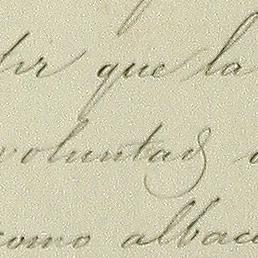 dir que la
voluntad
como albac